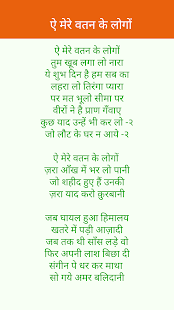 ऐ मेरे वतन के लोगों
ऐ मेरे वतन के लोगों
तुम खूब लगा लो नारा
ये शुभ दिन है हम सब का
लहरा लो तिरंगा प्यारा
पर मत भूलो सीमा पर
वीरों ने है प्राण गँवाए
कुछ याद उन्हें भी कर लो -२
जो लौट के घर न आये -२
ऐ मेरे वतन के लोगों
ज़रा आँख में भर लो पानी
जो शहीद हुए हैं उनकी
ज़रा याद करो क़ुरबानी
जब घायल हुआ हिमालय
खतरे में पड़ी आज़ादी
जब तक थी साँस लड़े वो
फिर अपनी लाश बिछा दी
संगीन पे धर कर माथा
सो गये अमर बलिदानी